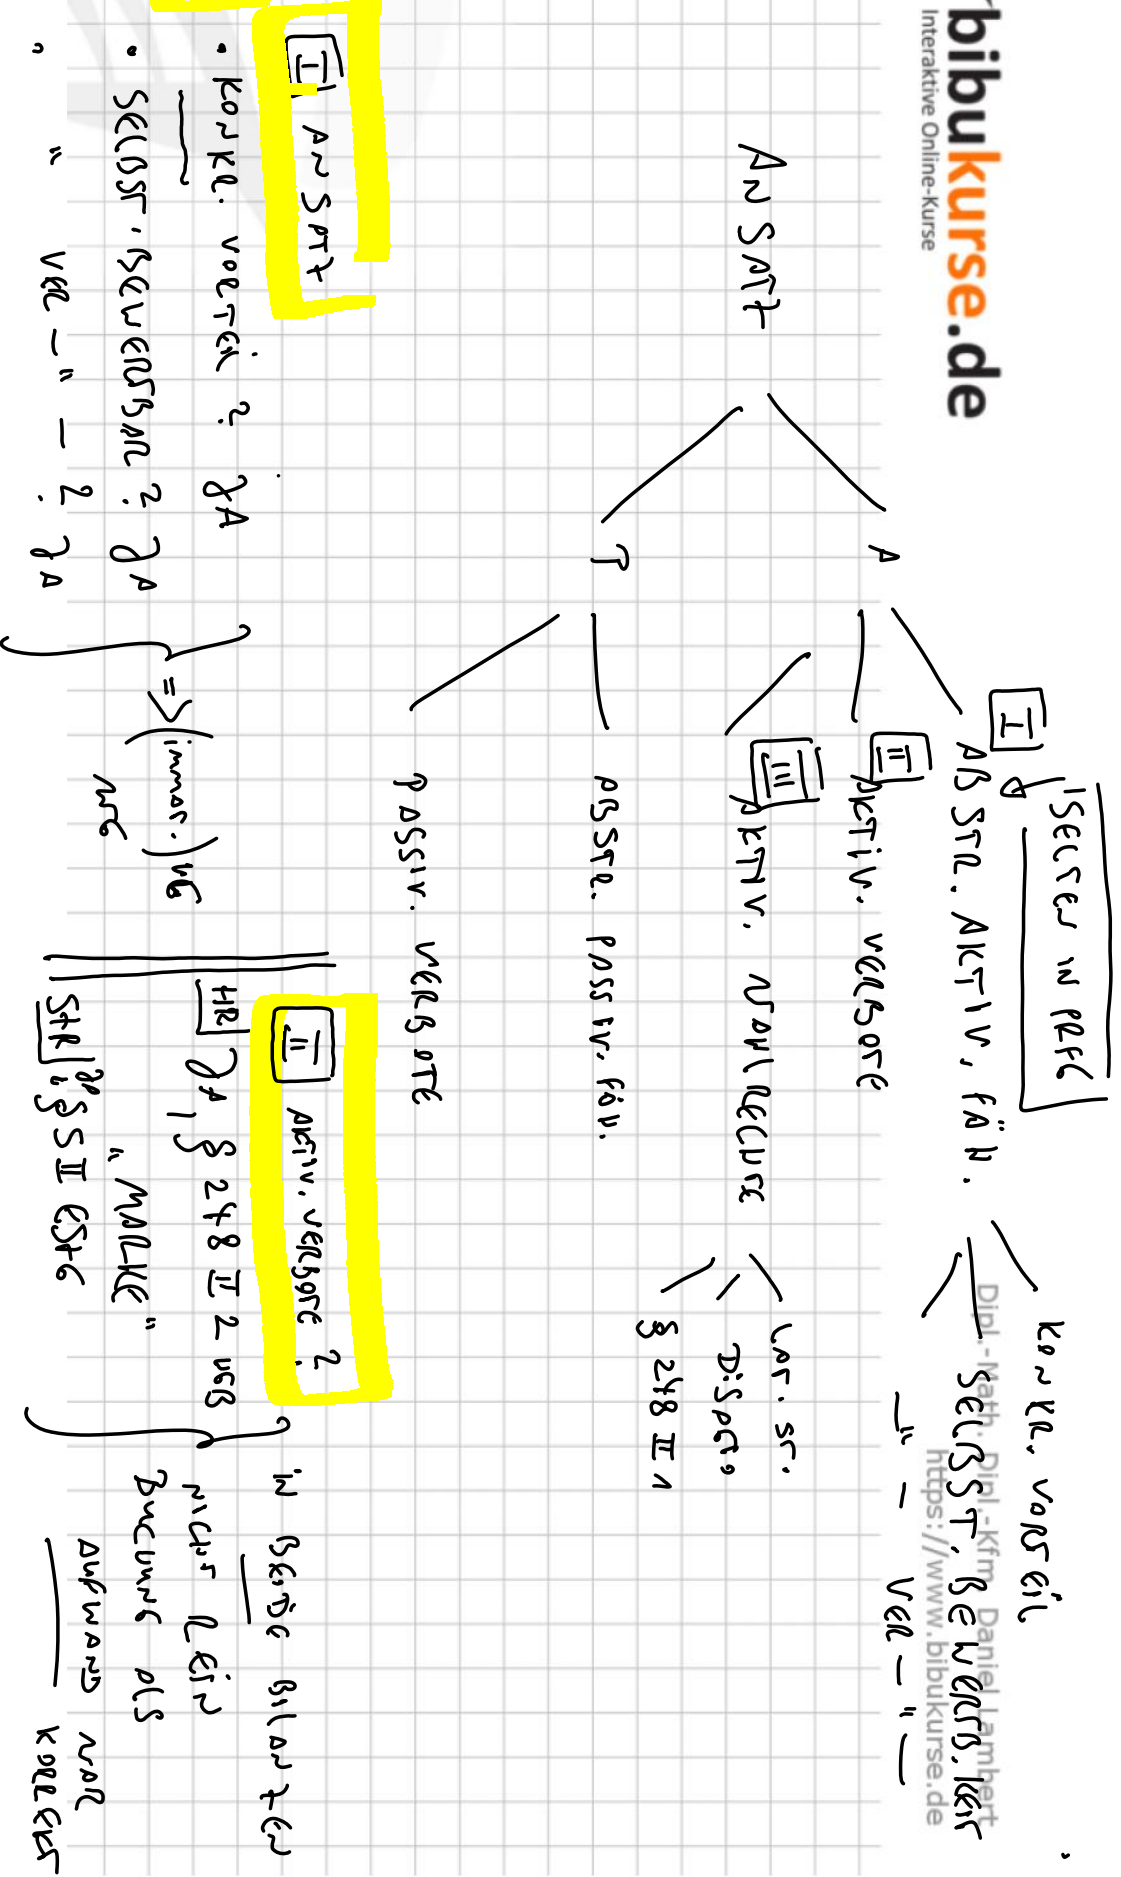 bibukurse.de
Interaktive Online-Kurse
Dipl.-Math. Dipl.-Kfm. Daniel Lambert
https://www.bibukurse.de
SELTEN IN PRFG
I ABSTR. AKTIV. FÄH.
KONKR. VORTEIL
SELBST. BEWERTB.KEIT
—"— VER—"—
A
II AKTIV. VERBOTE
ANSATZ
III AKTIV. WAHLRECHTE
LAT. ST.
DISAG.
§ 248 II 1
P
ABSTR. PASSIV. FÄH.
PASSIV. VERBOTE
I ANSATZ
• KONKR. VORTEIL? JA
• SELBST. BEWERTBAR? JA
" " VER—"—? JA
=> (immat.) VG
WG
II AKTIV. VERBOTE?
HB JA, § 248 II 2 HGB
"MARKE"
StB § 5 II EStG
IN BEIDE BILANZEN
NICHT REIN
BUCHUNG ALS
AUFWAND WAR
KORREKT